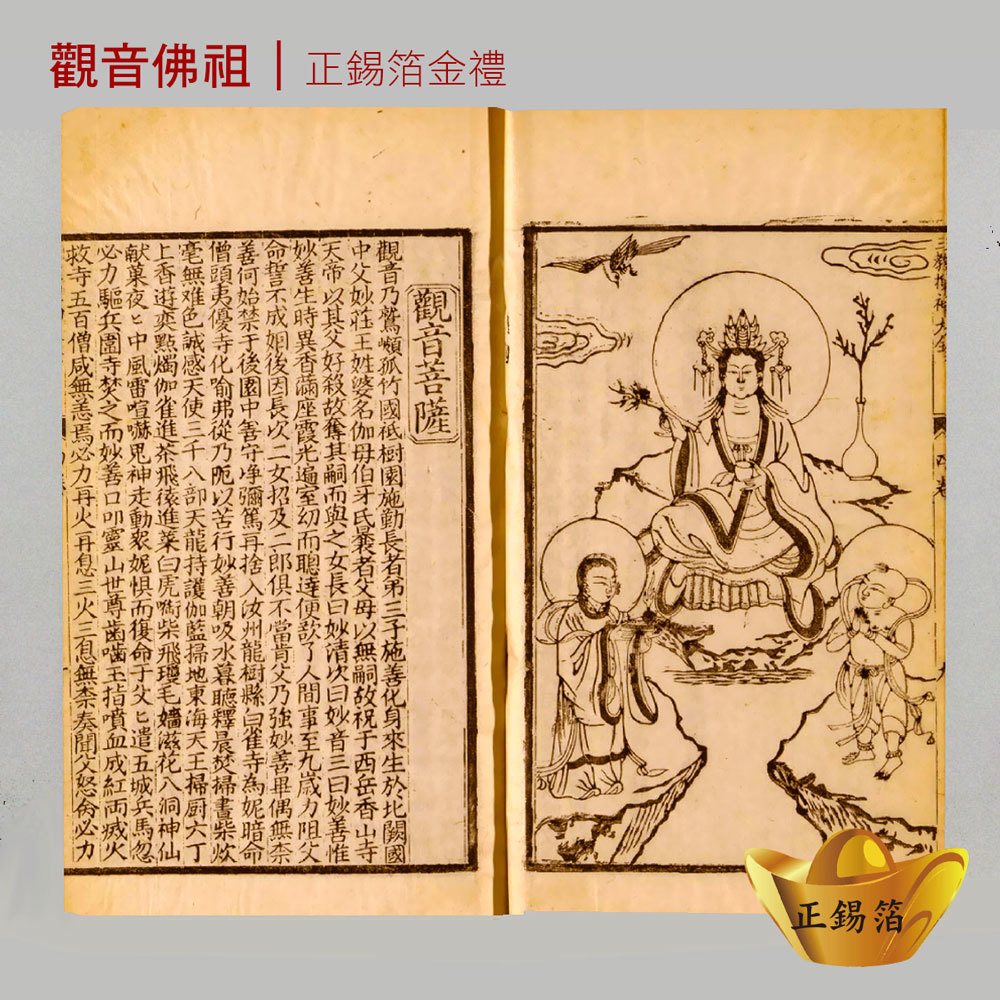 觀音佛祖｜正錫箔金禮
觀音菩薩
觀音乃鷲嶺狐竹國祗樹園施勤長者第三子施善化身來生於北闕國
中父妙莊王姓婆名伽母伯牙氏曩者父母以無嗣故祝于西岳香山寺
天帝以其父好殺故奪其嗣而與之女長曰妙清次曰妙音三曰妙善惟
妙善生時異香滿座霞光遍室幼而聰達便欲了人間事至九歲力阻父
命誓不成姻後因長次二女招及二郎俱不當肯父乃強妙善畢偶無柰
善何始禁于後園中善守净彌篤再捨入汝州龍樹縣白雀寺為妮暗命
僧頭夷優寺化喻弗從乃阨以苦行妙善朝吸水暮聽釋晨焚掃晝柴炊
毫無难色誠感天使三千八部天龍持護伽藍掃地東海天王掃厨六丁
上香遊奕點燭伽雀進茶飛猿進菜白虎啣柴飛瓊毛嬙滋花八洞神仙
献菓夜匕中風雷喧嚇鬼神走動衆妮惧而復命于父匕遣五城兵馬忽
必力驅兵圍寺焚之而妙善口叩靈山世尊齒嚙玉指噴血成紅雨滅火
救寺五百僧咸無恙焉必力再火再息三火三息無柰奏聞父怒命必力
正錫箔